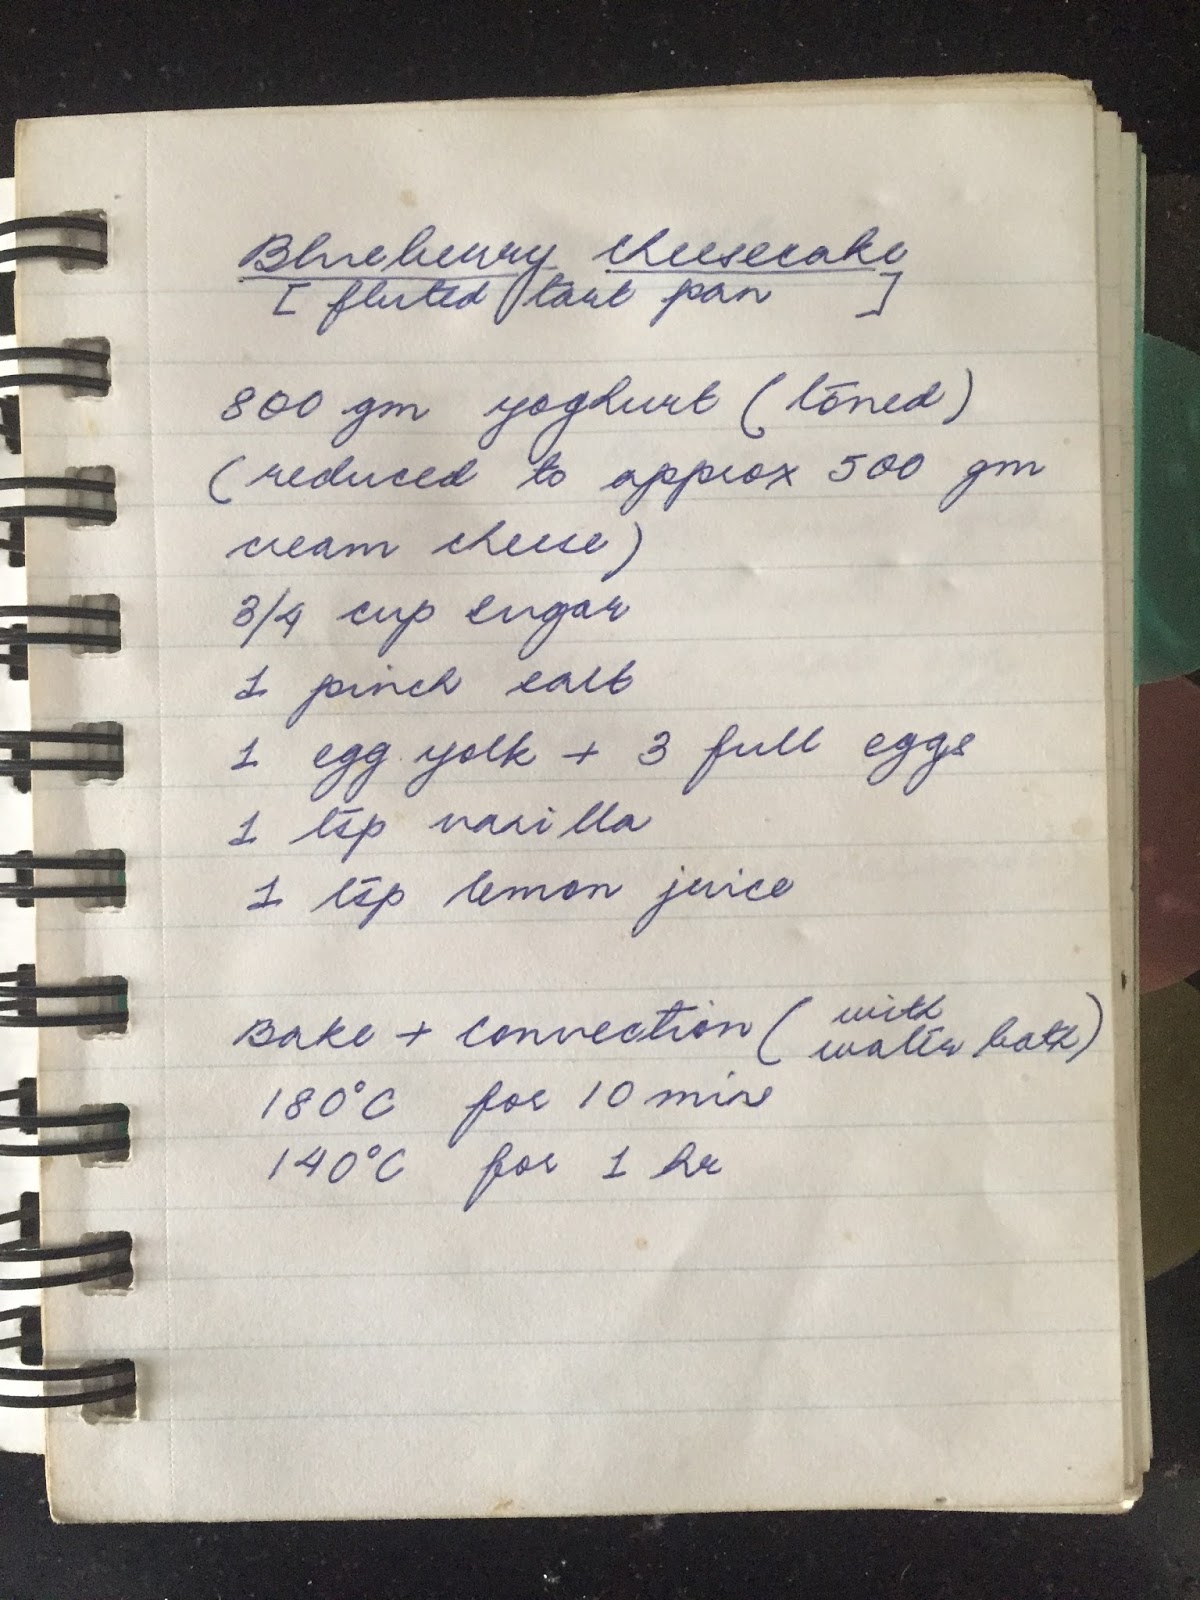 Blueberry cheesecake
[ fluted tart pan ]
800 gm yoghurt (toned)
(reduced to approx 500 gm
cream cheese)
3/4 cup sugar
1 pinch salt
1 egg yolk + 3 full eggs
1 tsp vanilla
1 tsp lemon juice
Bake + convection (with
water bath)
180°C for 10 mins
140°C for 1 hr